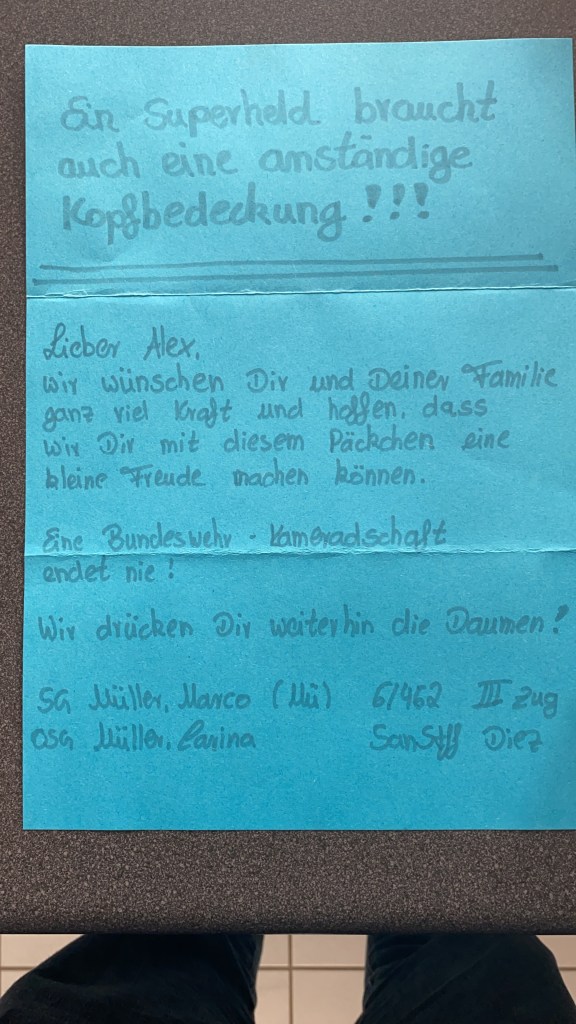 Ein Superheld braucht
auch eine anständige
Kopfbedeckung !!!
Lieber Alex,
wir wünschen Dir und Deiner Familie
ganz viel Kraft und hoffen, dass
wir Dir mit diesem Päckchen eine
kleine Freude machen können.
Eine Bundeswehr - Kameradschaft
endet nie !
Wir drücken Dir weiterhin die Daumen !
SG Müller, Marco (Mü) 6/462 III Zug
OSG Müller, Carina SanStff Diez